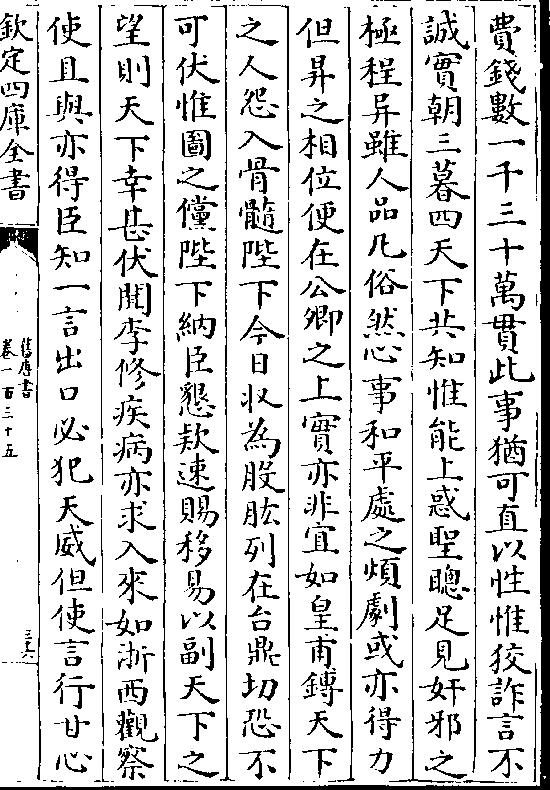 費錢數一千三十萬貫此事猶可直以性惟狡詐言不
誠實朝三暮四天下共知惟能上惑聖聰足見奸邪之
極程异雖人品凡俗然心事和平處之煩劇或亦得力
但昇之相位便在公卿之上實亦非宜如皇甫鎛天下
之人怨入骨髓陛下今日收為股肱列在台鼎切恐不
可伏惟圖之儻陛下納臣懇款速賜移易以副天下之
望則天下幸甚伏聞李修疾病亦求入來如浙西觀察
使且與亦得臣知一言出口必犯天威但使言行甘心
欽定四庫全書
舊唐書
卷一百三十五